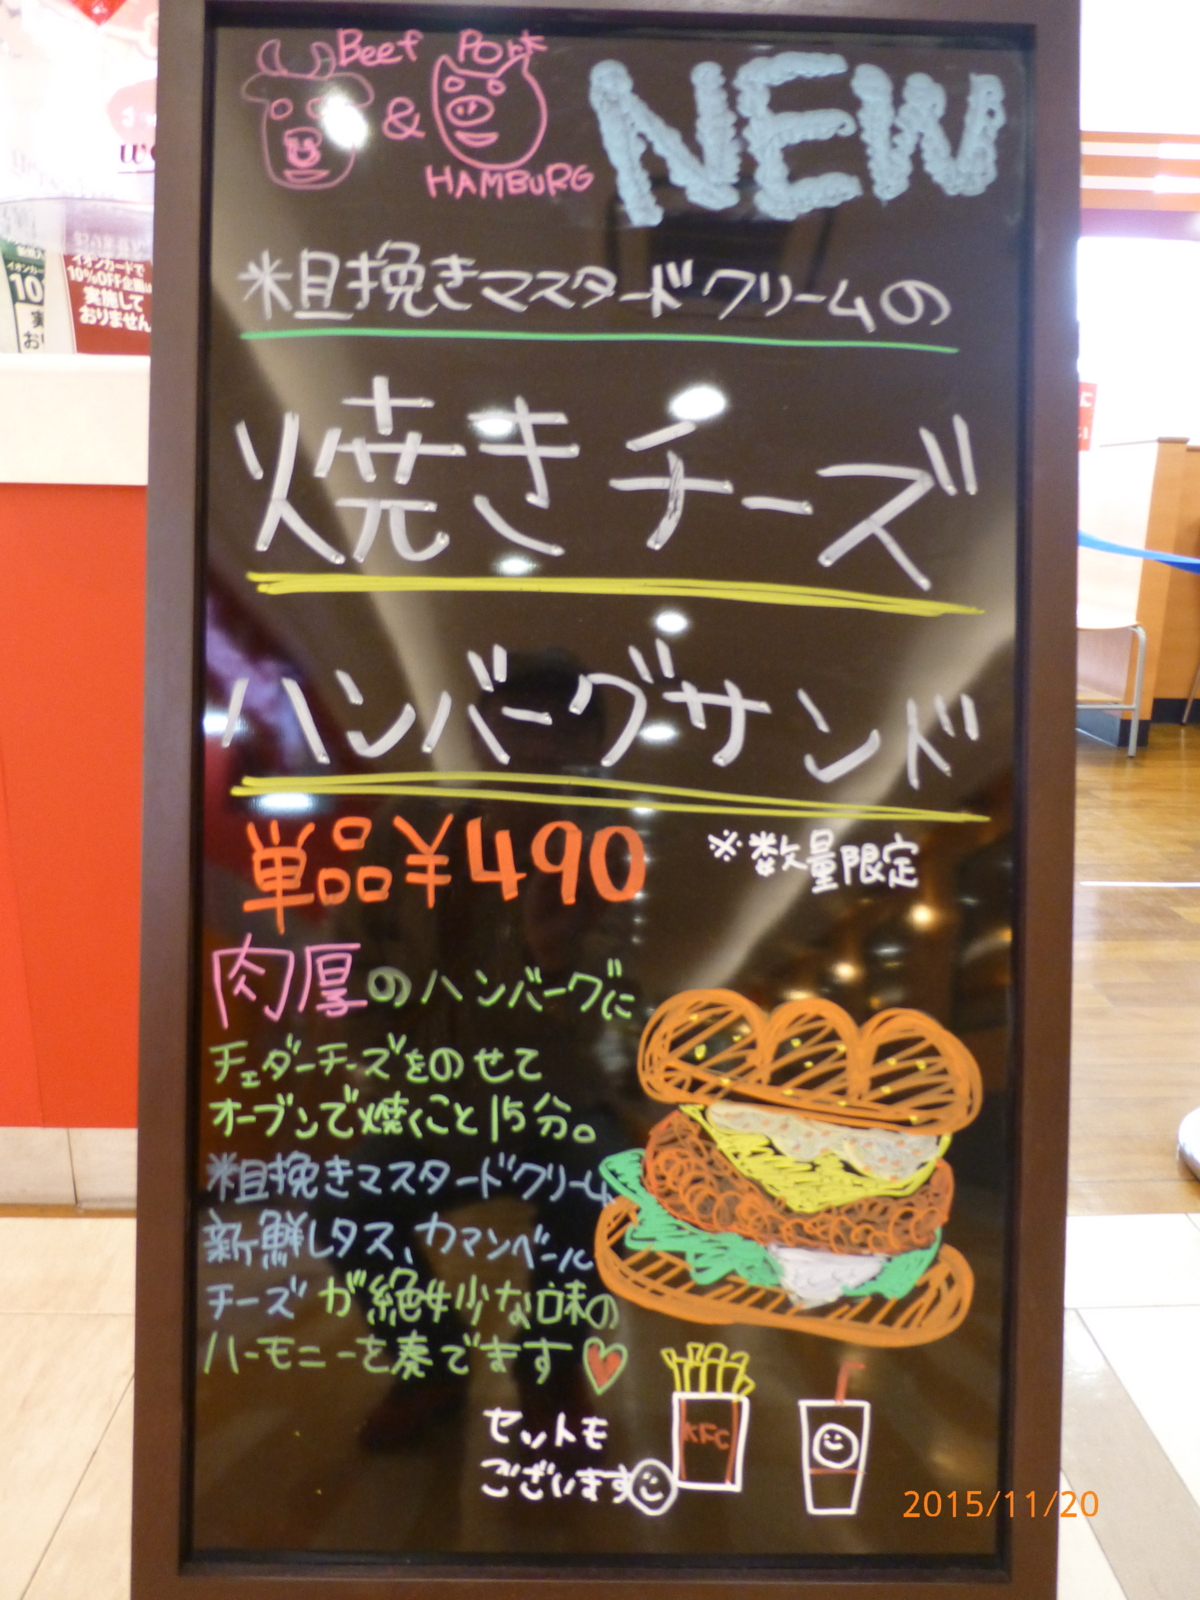 Beef & Pork
HAMBURG
NEW
粗挽きマスタードクリームの
焼きチーズ
ハンバーグサンド
単品¥490
※数量限定
肉厚のハンバーグに
チェダーチーズをのせて
オーブンで焼くこと15分。
粗挽きマスタードクリーム、
新鮮レタス、カマンベール
チーズが絶妙な味の
ハーモニーを奏でます
セットも
ございます
KFC
イオンカードで
10%OFF企画は
実施して
おりません
2015/11/20